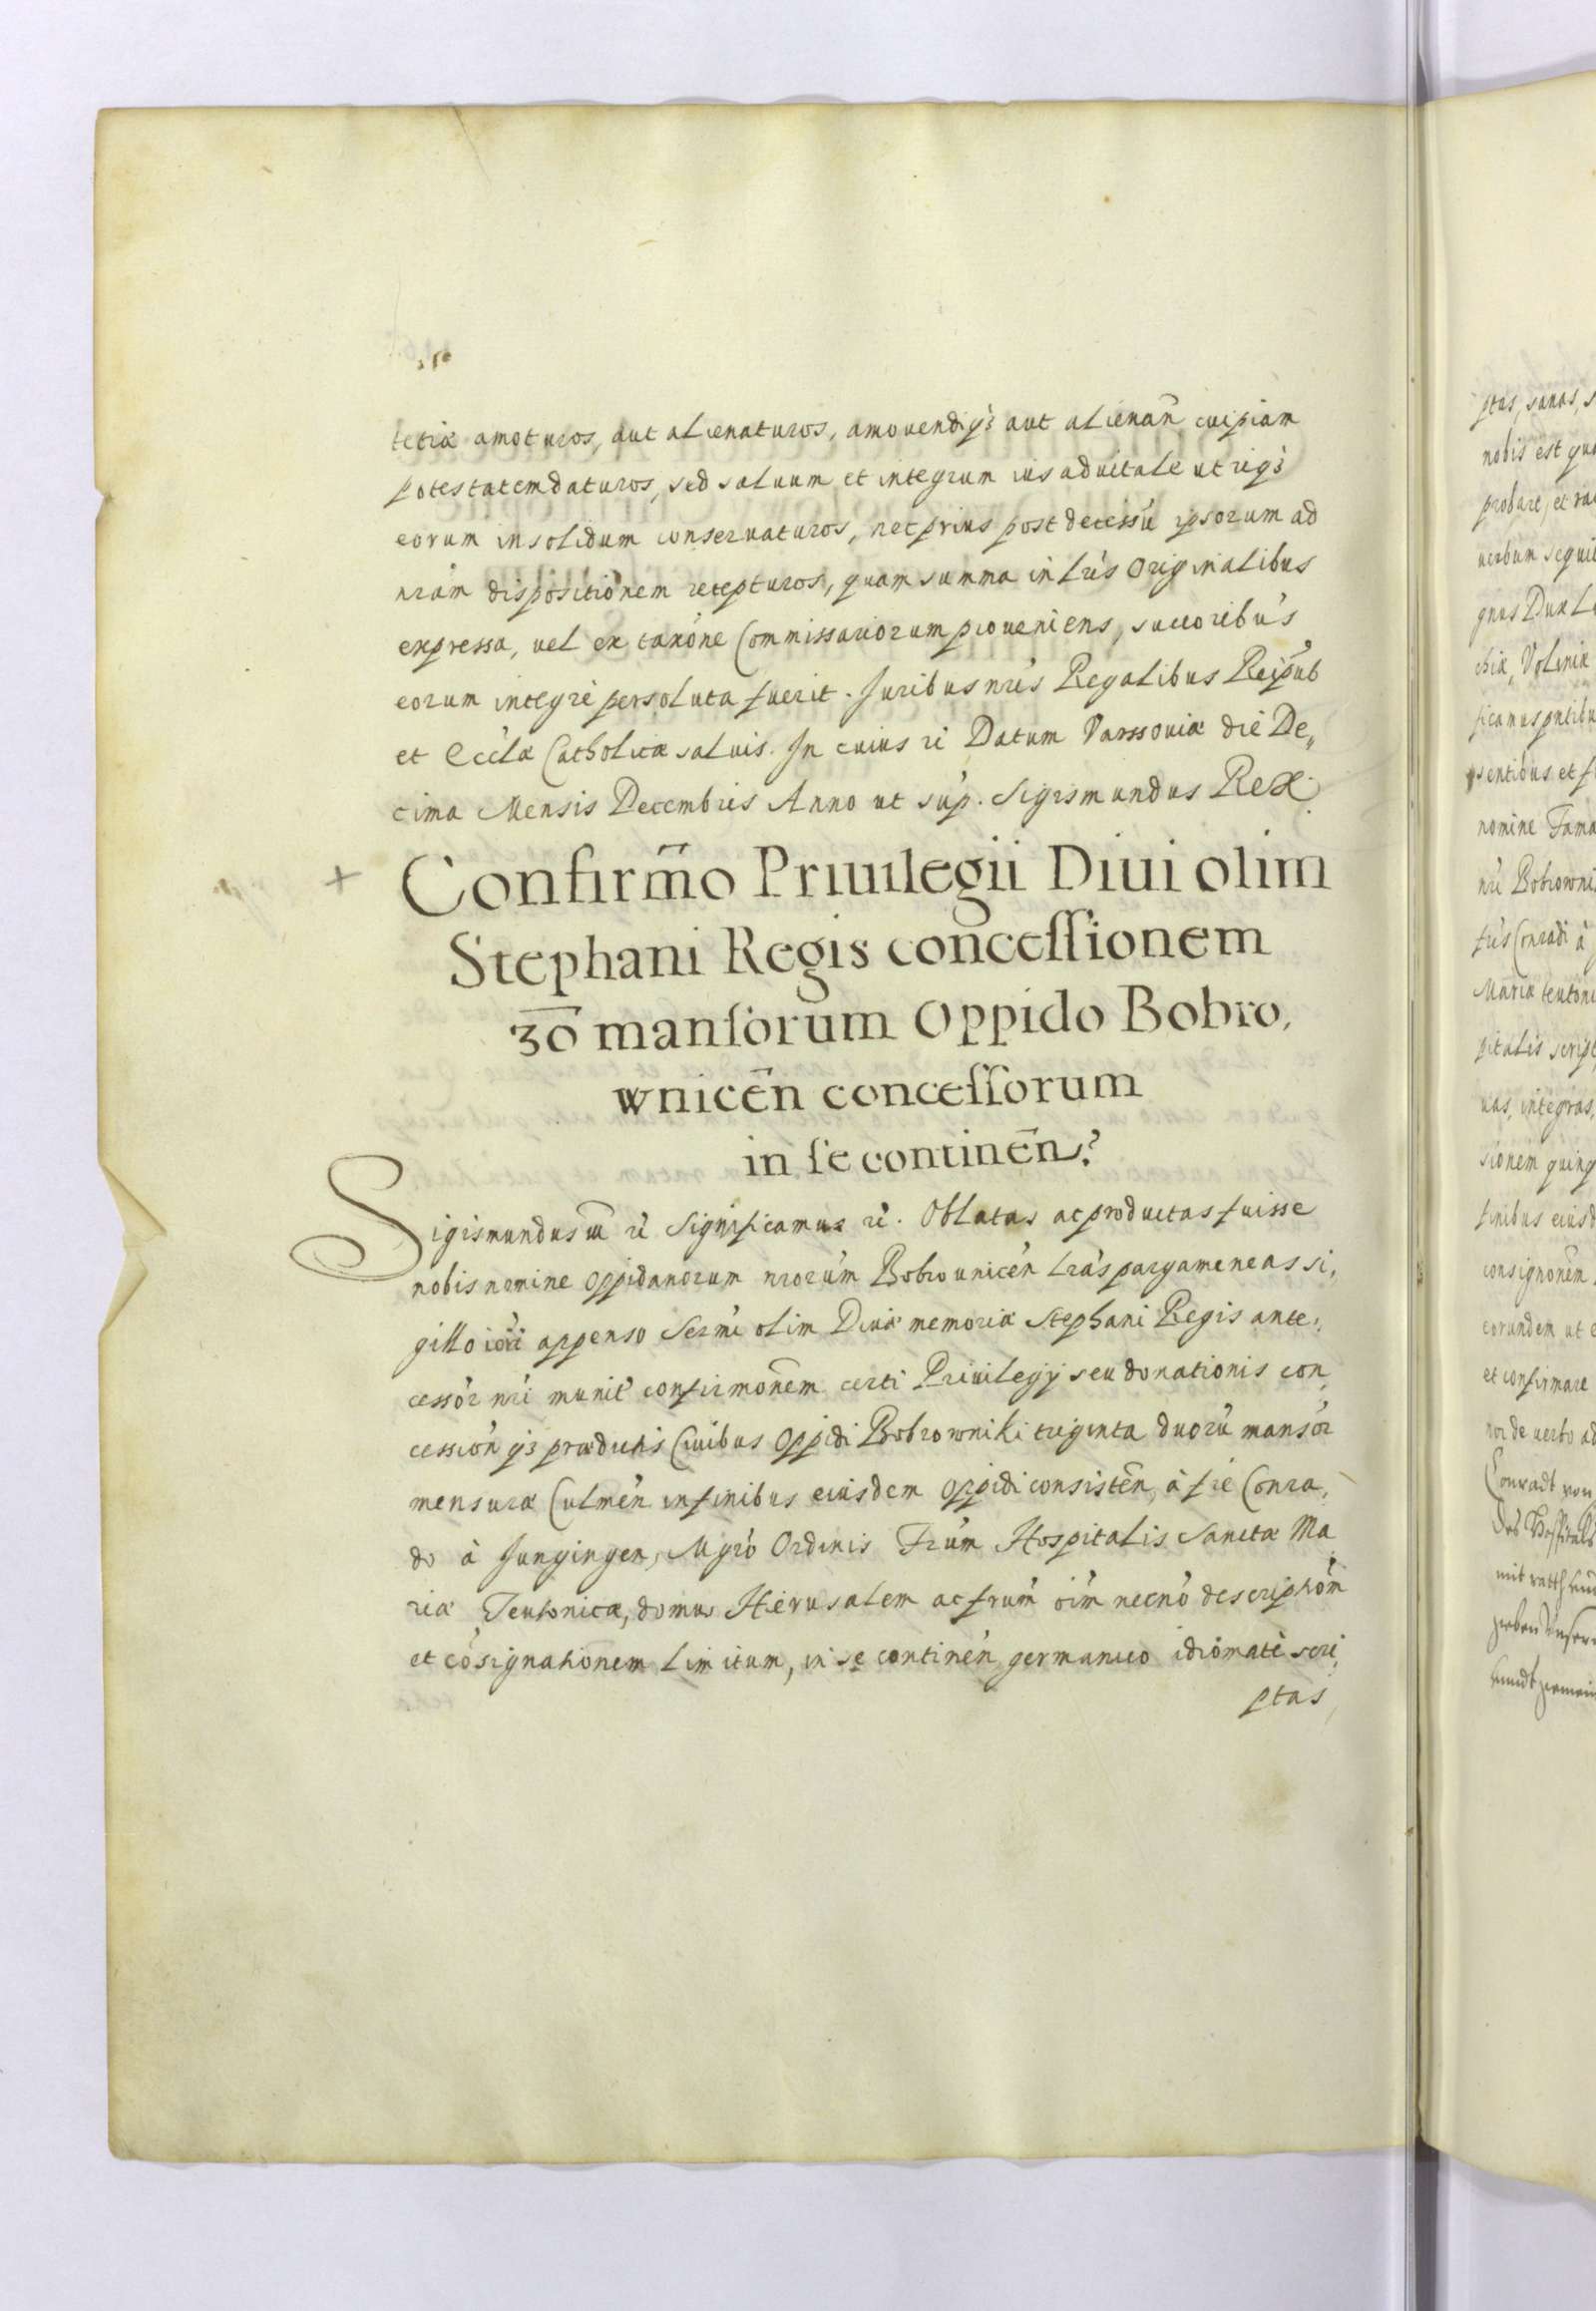 tetiæ amoturos, aut alienaturos, amovendiq3 aut alienan̄ cuipiam
potestatem daturos, sed saluum et integrum ius aduitale utriq3
eorum in solidum conseruaturos, nec prius post decessū ipsorum ad
nrám dispositionem recepturos, quam summa in lrís Originalibus
expressa, uel ex taxóne Commissariorum proueniens, succoribús
eorum integrè persoluta fuerit. Juribus nrís Regalibus Reipub
et Ecclæ Catholicæ saluis. In cuius rei Datum Varssouiæ die De„
cima Mensis Decembris Anno ut sup. Sigismundus Rex
+ Confirm̄o Priuilegii Diui olim
Stephani Regis conceſſionem
30 manſorum Oppido Bobro,
wnicēn conceſſorum
in ſe continēn?
Sigismundus III rè Significamus rè. Oblatas ac productas fuisse
nobis nomine oppidanorum nrorúm Bobrounicén lrás pargameneas si,
gillo appenso Sermi olim Diuæ memoriæ Stephani Regis ante,
cessór nrí munit confirmonem certi Priuilegÿ seu donationis con
cession q3 prædictis Ciuibus Oppidi Bobrowniki triginta duorū mansór
mensuræ Culmén in finibus eiusdem oppidi consistén, à frè Conra,
do à Jungingen, Mgró Ordinis Frúm Hospitalis Sanctæ Ma
riæ Teutonicæ, domus Hierusalem ac frúm oím necnó descriptióm
et cósignationem limitum, in se continén germanico idiomatè scri,
ptas
ptas, sanas, s
nobis est qua
probare, et ra
uerbum sequi
gnus Dux L
chiæ, Voliniæ
ficamus pntibu
sentibus et f
nomine Fama
nrí Bobrowni
frís Conradi à
Mariæ teutoni
pitalis script
uas, integras,
sionem quinq
finibus eiusd
consignonem
eorundem ut e
et confirmare
de uerbo ad
Conradt von
Des Hospitals
mit rath
geben Unser